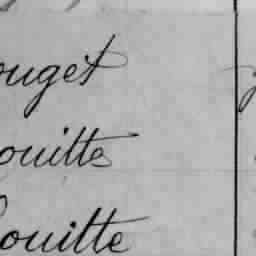 ouget
ouitte
ouitte